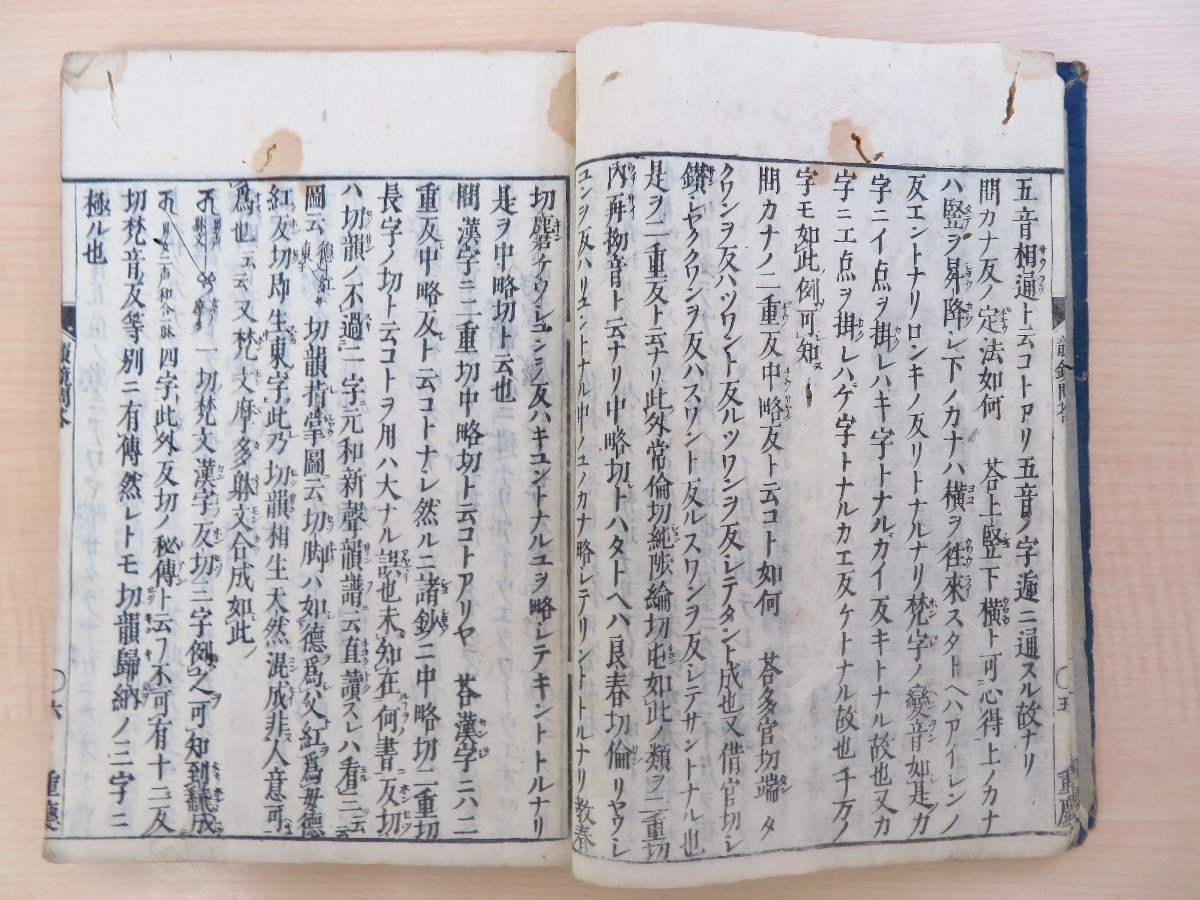 五音相通ト云コトアリ五音ノ字遍ニ通スル故ナリ
問カナ反ノ定法如何 荅上竪下横ト可心得上ノカナ
ハ竪ヲ昇降シ下ノカナハ横ヲ往來スタトヘハアイレンノ
反エントナリロンキノ反リトナルナリ梵字ノ變音如是カ
字ニイ点ヲ掛レハキ字トナルカイ反キトナル故也又カ
字ニエ点ヲ掛レハゲ字トナルカエ反ケトナル故也千万ノ
字モ如此例可知
問カナノ二重反中略反ト云コト如何 荅多官切端タ
クワンヲ反ハツワント反ルツワンヲ反シテタント成也又借官切シ
鑽シヤククワンヲ反ハスワント反ルスワンヲ反シテサントナル也
是ヲ二重反ト云ナリ此外常倫切純陟綸切屯如此ノ類ヲ二重切
内再拗音ト云ナリ中略切トハタトヘハ良春切倫リヤウシ
ユンヲ反ハリユントナル中ノユノカナ略シテリントトルナリ敎春
切麏キヤウシユンノ反ハキユントナルユヲ略シテキントトルナリ
是ヲ中略切ト云也
問漢字ニ二重切中略切ト云コトアリヤ 荅漢字ニハ二
重反中略反ト云コトナシ然ルニ諸鈔ニ中略切二重切
長字ノ切ト云コトヲ用ハ大ナル也未知在何書反切
ハ切韻ノ不過二字元和新聲韻譜ニ云直讀スレハ看ニ云
圖云 德紅 東字 切韻指掌圖云切脚ハ如德爲父紅爲母德
紅反切即生東字此乃切韻相生天然混成非人意可
爲也云云又梵文摩多躰文合成如此
一切梵文漢字反切三字例之可知到
四字此外反切ノ秘傳ト云フ不可有十二反
切梵音反等別ニ有傳然レトモ切韻歸納ノ三字ニ
極ル也
韻鏡問荅
〇五
〇六
重慶